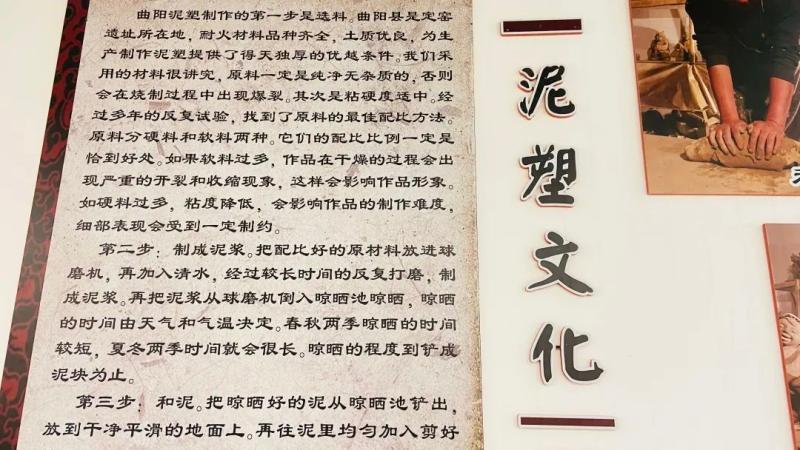 曲阳泥塑制作的第一步是选料。曲阳县是定窑
遗址所在地，耐火材料品种齐全，土质优良，为生
产制作泥塑提供了得天独厚的优越条件。我们采
用的材料很讲究，原料一定是纯净无杂质的，否则
会在烧制过程中出现爆裂。其次是粘硬度适中。经
过多年的反复试验，找到了原料的最佳配比方法。
原料分硬料和软料两种。它们的配比比例一定是
恰到好处。如果软料过多，作品在干燥的过程会出
现严重的开裂和收缩现象，这样会影响作品形象。
如硬料过多，粘度降低，会影响作品的制作难度，
细部表现会受到一定制约。
第二步：制成泥浆。把配比好的原材料放进球
磨机，再加入清水，经过较长时间的反复打磨，制
成泥浆。再把泥浆从球磨机倒入晾晒池晾晒，晾晒
的时间由天气和气温决定。春秋两季晾晒的时间
较短，夏冬两季时间就会很长。晾晒的程度到铲成
泥块为止。
第三步：和泥。把晾晒好的泥从晾晒池铲出，
放到干净平滑的地面上。再往泥里均匀加入剪好
泥塑文化